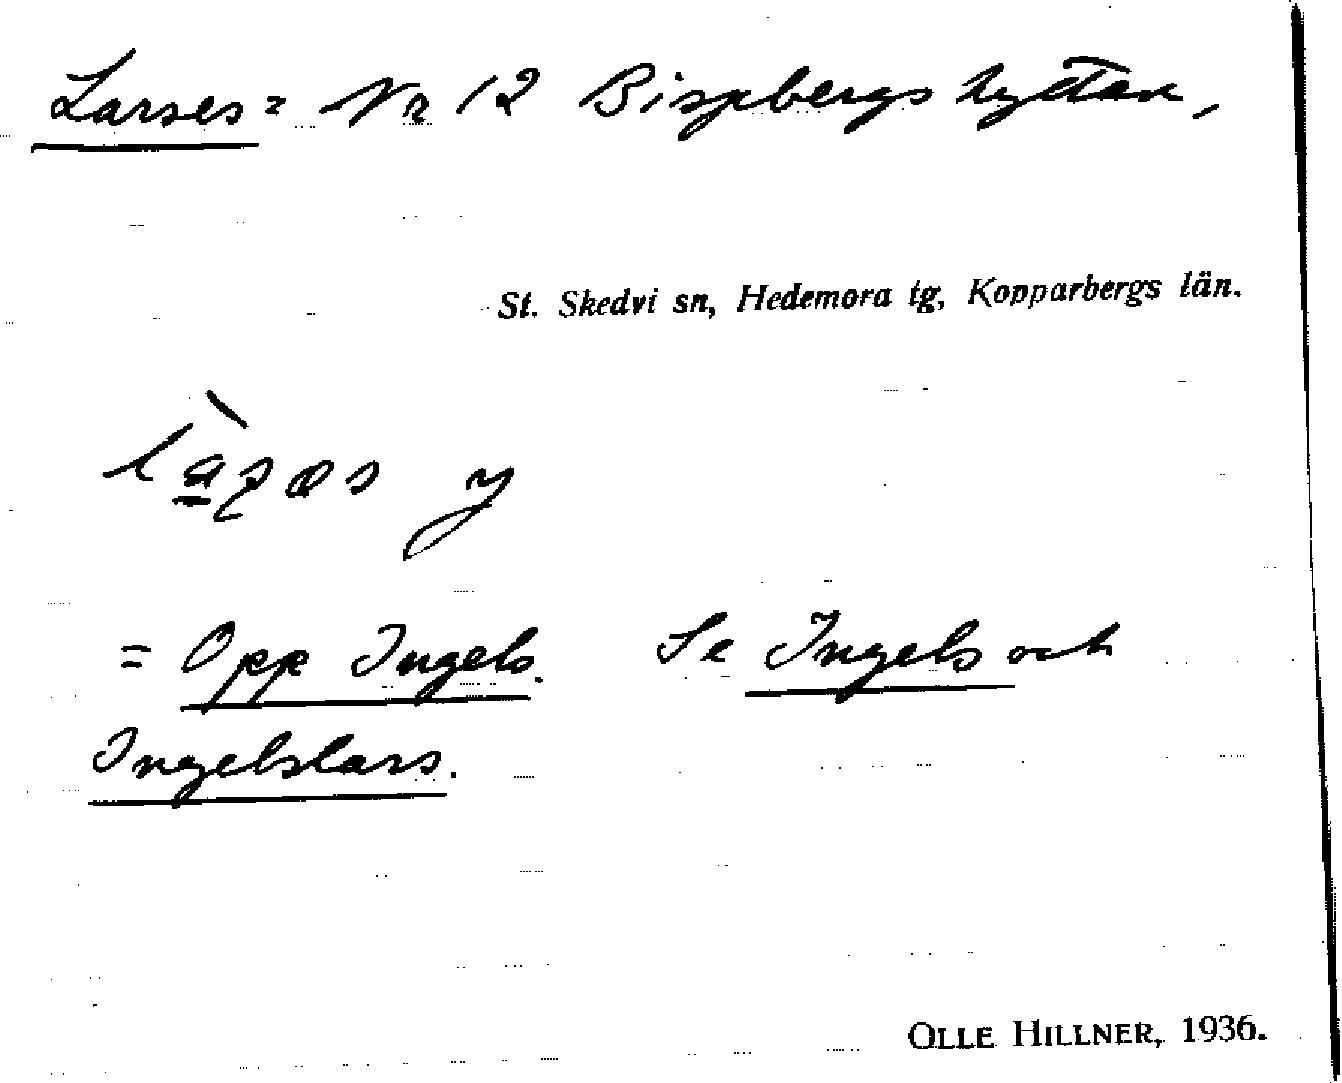 Larses = Nr 12 Bispbergshyttan,
St. Skedvi sn, Hedemora tg, Kopparbergs län.
= Opp Ingels. Se Ingels och
Ingelslars.
OLLE HILLNER, 1936.